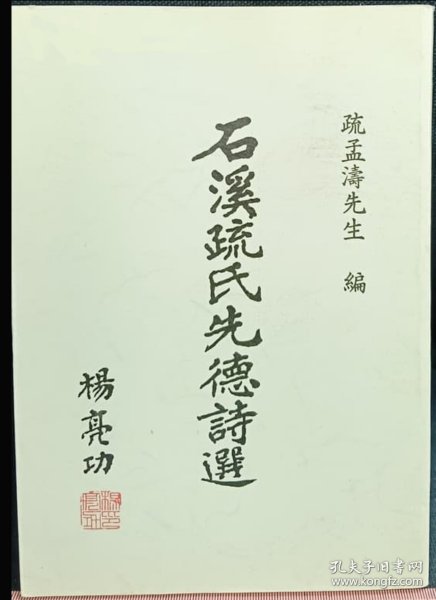 疏孟濤先生 編
石溪疏氏先德詩選
楊亮功
孔夫子旧书网
www.kongfz.com